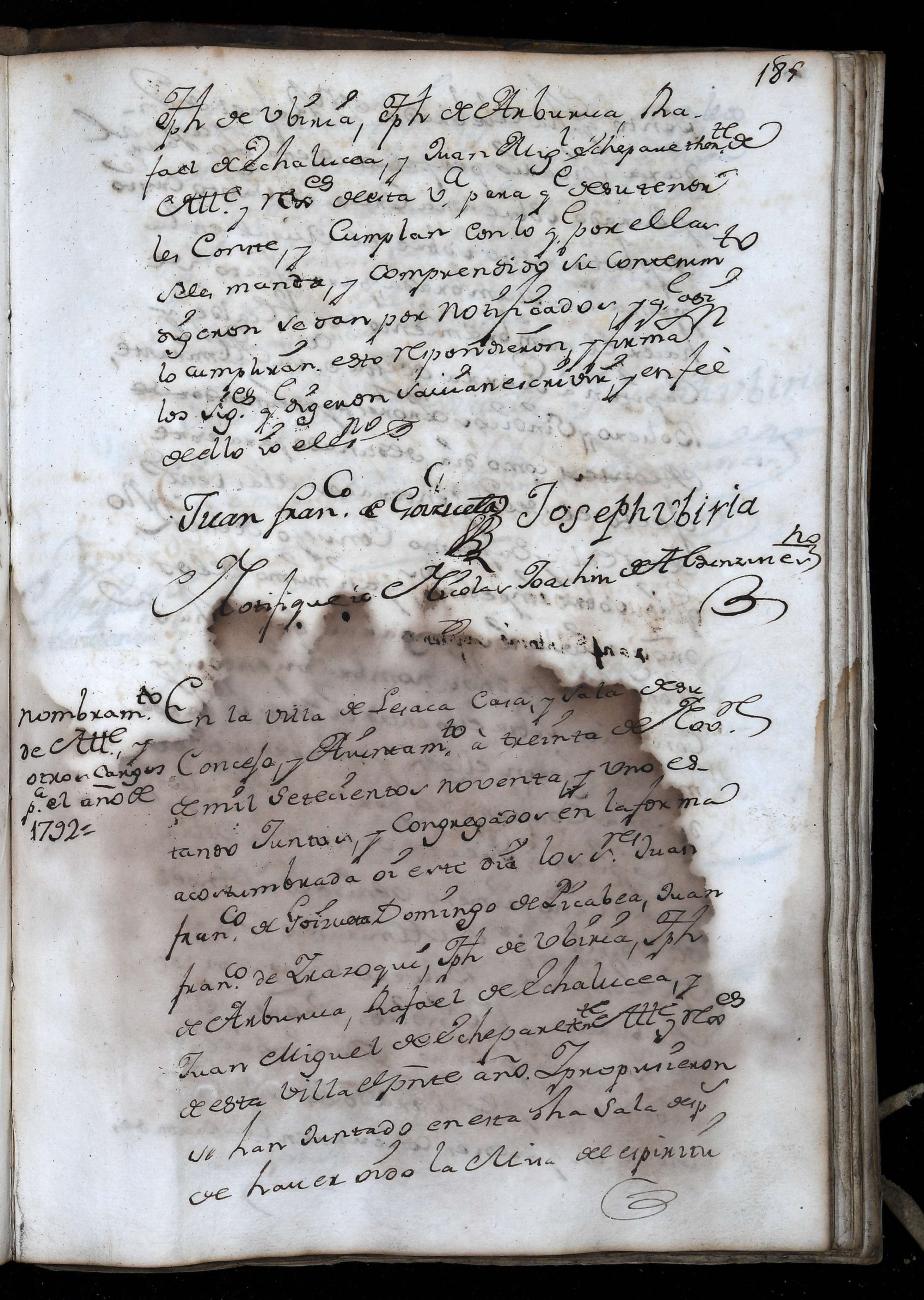 185
Jph de Vbiria, Jph de Arburua, Ra-
fael de Echalucea, y Juan Migl. Echepare then.te de
Alle. y rexres de esta Va. para qe de su tenor
les Conste, y Cumplan con lo qe por ellas
seles manda, y comprendido su contenimto
digeron se dan por Notificados, y qe asi
lo cumpliran. esto respondieron, y firman
los sigtes qe digeron savian escrivir, y en feè
de ello io el essno
Juan franco. de Goizueta Joseph Vbiria
Notifique io Nicolas Joachin de Albenziness.no
nombramto.
de Alle. y
otros cargos
pa. el año de
1792=
En la villa de Lesaca Casa, y Sala de su
Concejo, y Aiuntamto. à treinta de Novre.
de mil setecientos noventa, y uno es-
tando Juntos, y Congregados en la forma
acostumbrada oi este dia los Sres. Juan
franco. de Goizueta Domingo de Picabea, Juan
franco. de Irazoqui, Jph de Vbiria, Jph
de Arburua, Rafael de Echalucea, y
Juan Miguel de Echepare tente Alle. y rexres
de esta Villa el pnte año. I propusieron
se han Juntado en esta dha Sala desp.
de haver oido la Misa del espiritu